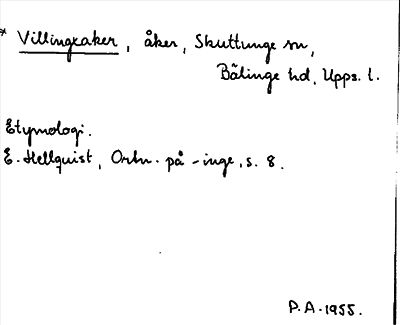 * Villingxaker, åker, Skuttunge sn,
Bälinge hd, Upps. l.
Etymologi.
E. Hellquist, Ortn. på -inge, s. 8.
P.A. 1955.